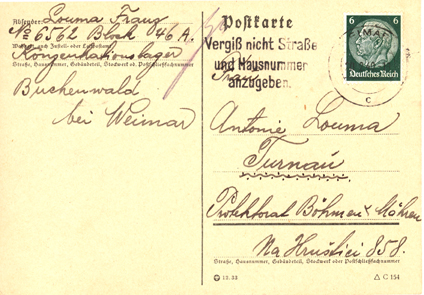 Absender: Louma Franz
No 6562 Block 46 A.
Wohnort, auch Zustell- oder Leitpostamt
Konzentrationslager
Straße, Hausnummer, Gebäudeteil, Stockwerk od. Postschließfachnummer
Buchenwald
bei Weimar
Postkarte
Vergiß nicht Straße
und Hausnummer
anzugeben.
6 6
Deutsches Reich
WEIMAR
c
Antonie Louma
Turnau
Protektorat Böhmen u Mähren
Na Hruštici 858.
Straße, Hausnummer, Gebäudeteil, Stockwerk oder Postschließfachnummer
C 154